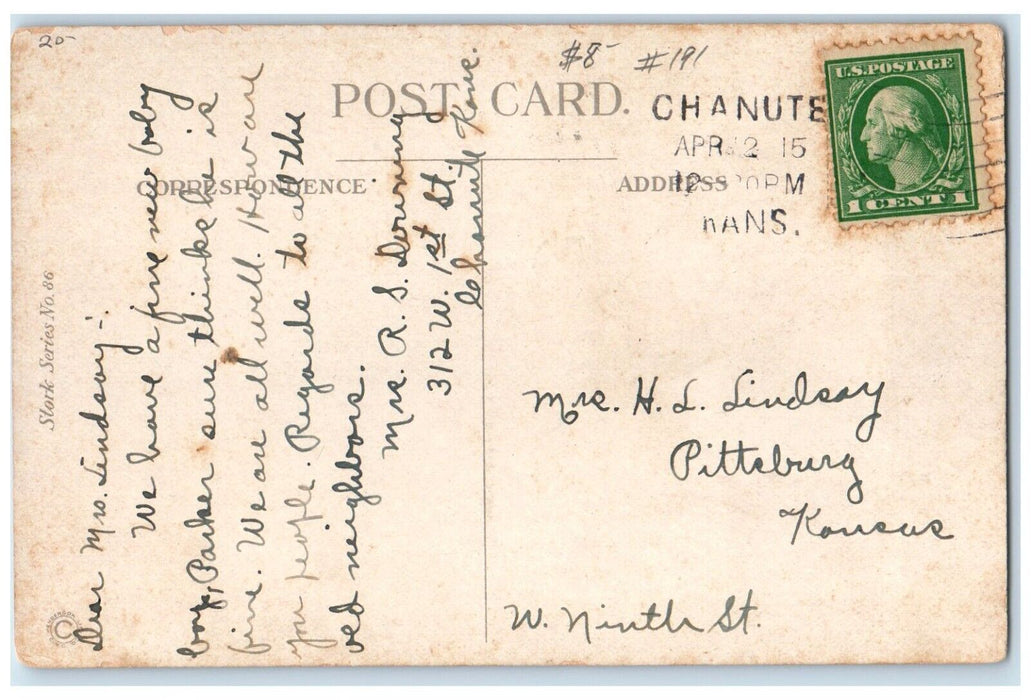 20-
$8-
#191
POST CARD.
CHANUTE
APR 2 15
12 30 PM
KANS.
U.S. POSTAGE
1 CENT 1
CORRESPONDENCE
ADDRESS
Stork Series No. 86
Dear Mrs. Lindsay-:
We have a fine new baby
boy, Parker sure thinks he is
fine. We are all well. How are
you people. Regards to all the
old neighbors.
Mrs. R. S. Downing
312 W. 1st St.
Chanute Kans.
Mrs. H. L. Lindsay
Pittsburg
Kansas
W. Ninth St.